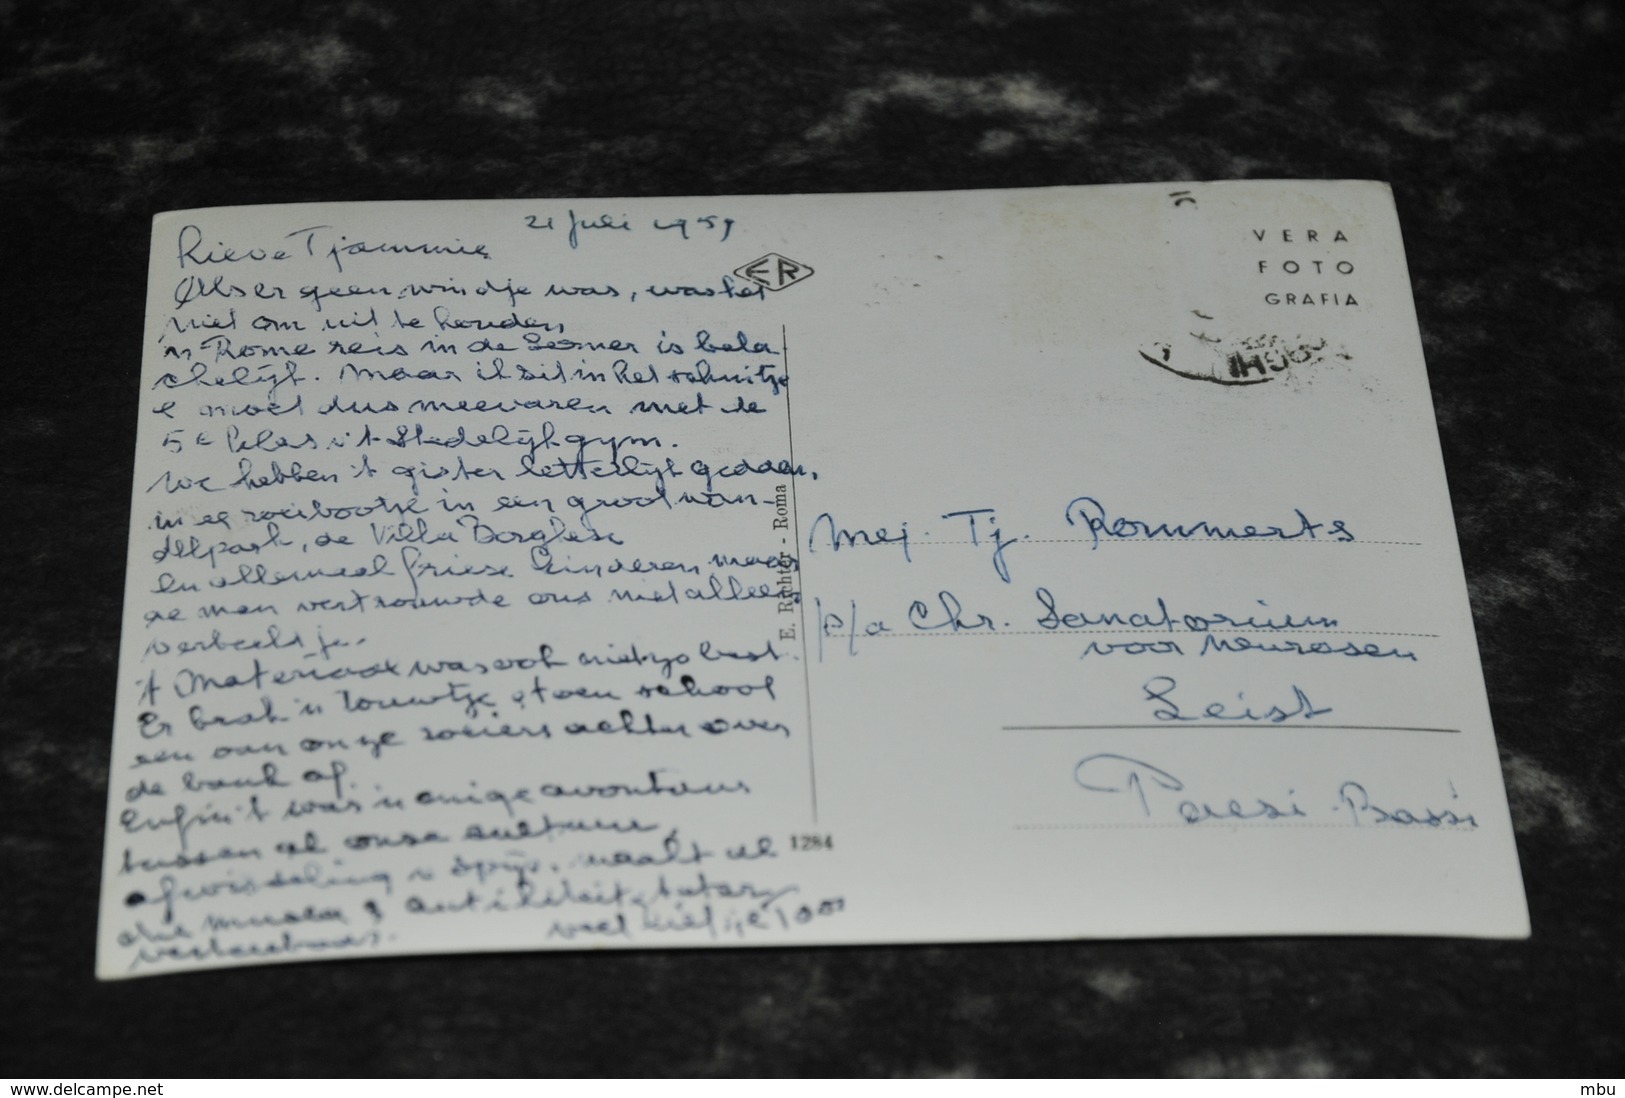 21 Juli 1959
Lieve Tjammie
Als er geen windje was, was het
niet om uit te houden
'n Rome reis in de Zomer is bela
chelijk. Maar ik zit in het schuitje
e moet dus meevaren met de
5e klas v 't Stedelijk gym.
We hebben 't gister letterlijk gedaan,
in ee roeibootje in een groot wan-
delpark, de Villa Borghese
En allemaal Friese kinderen maar
de man vertrouwde ons niet alleen
verbeeld je.
't Materiaal was ook niet zo best.
Er brak 'n touwtje e toen schoof
een van onze roeiers achter over
de bank af.
Enfin 't was 'n enige avontuur
tussen al onze cultuur,
afwisseling v spijs. maakt
die musea &
veel liefs je
ER
E. Richter - Roma
1284
VERA
FOTO
GRAFIA
Mej. Tj. Rommerts
p/a Chr. Sanatorium
voor Neurosen
Zeist
Paesi-Bassi
www.delcampe.net
mbu